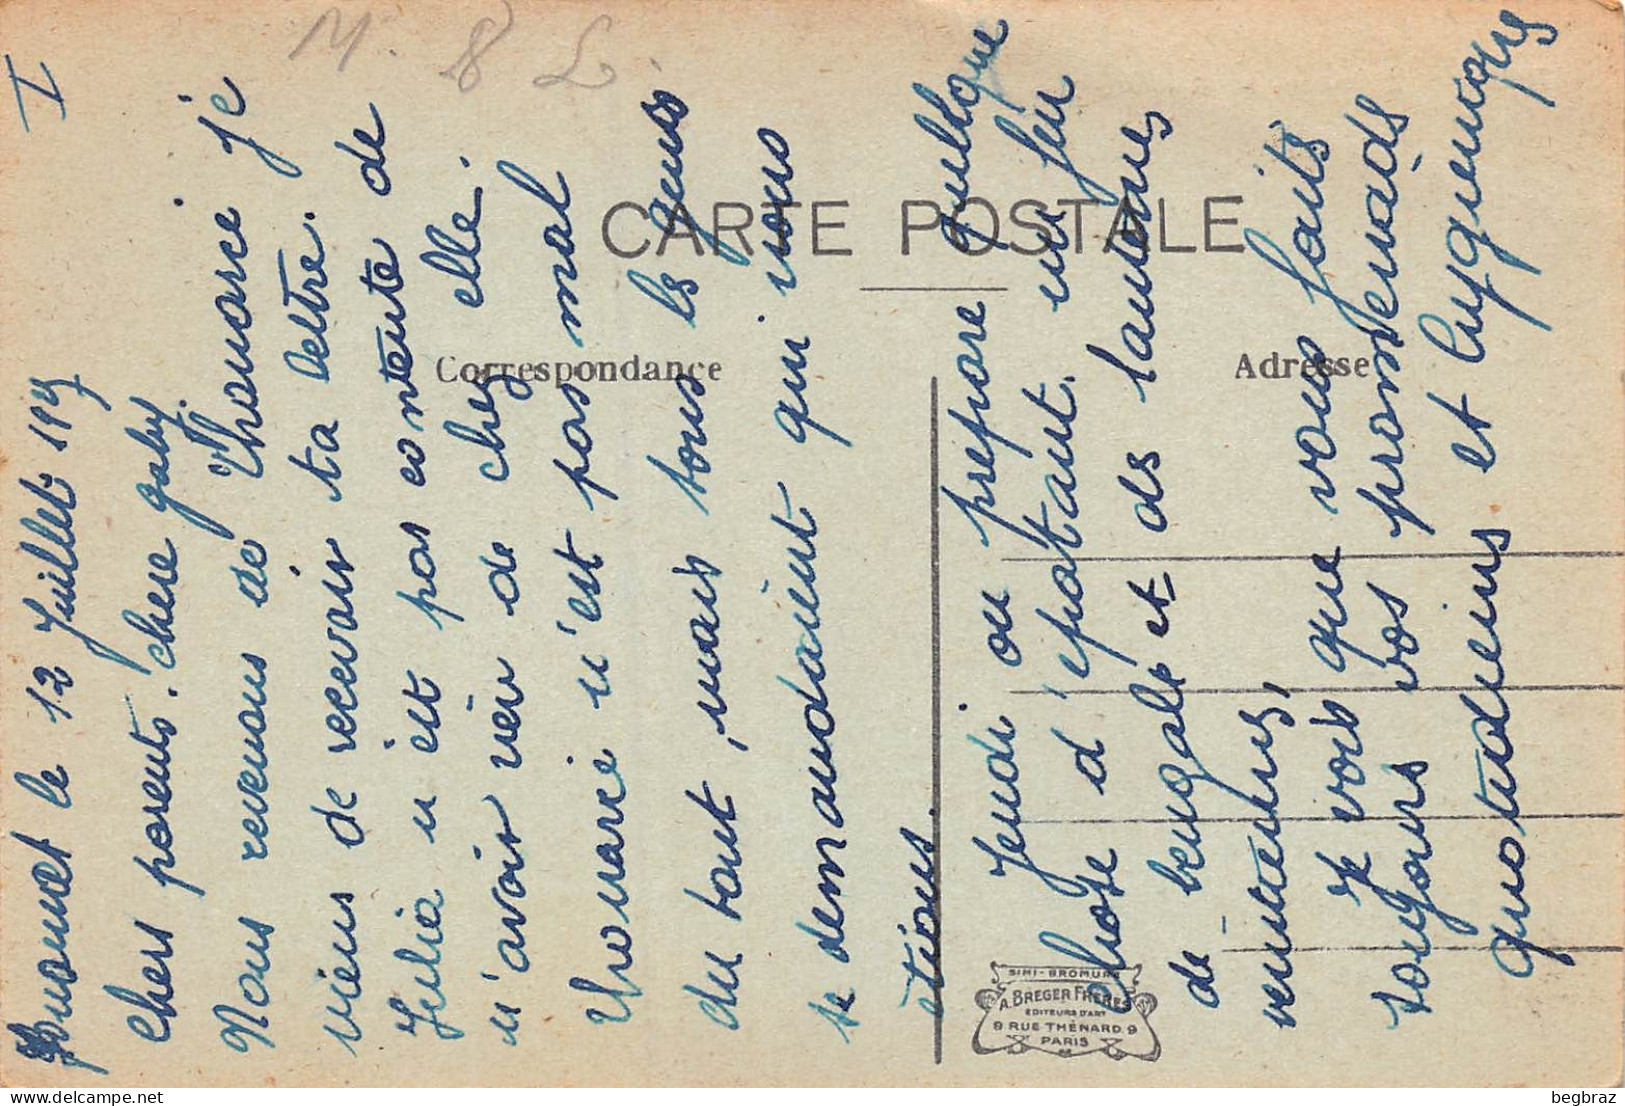 I
le 12 Juillet
Chers parents. chere gaby.
Nous revenons de Thonance je
viens de recevoir ta lettre.
Julia n'est pas contente de
n'avoir rien de chez elle.
n'est pas mal
du tout, mais tous ls gens
se demandaient qui nous
étions.
Jeudi on prepare quelque
chose d'épatant. un feu
de bengale et ds lanternes
venitiennes,
Je vois que vous faits
toujours vos promenads
quotidiens et
M. 8 L.
CARTE POSTALE
Correspondance
Adresse
SIMI-BROMURE
A. BREGER FRÈRES
EDITEURS D'ART
9 RUE THÉNARD 9
PARIS
begbraz